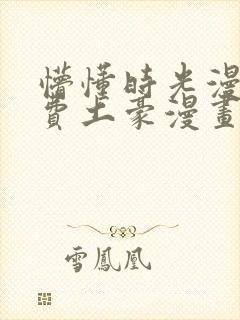 懵懂時光漫
費土豪漫畫
雪鳳凰